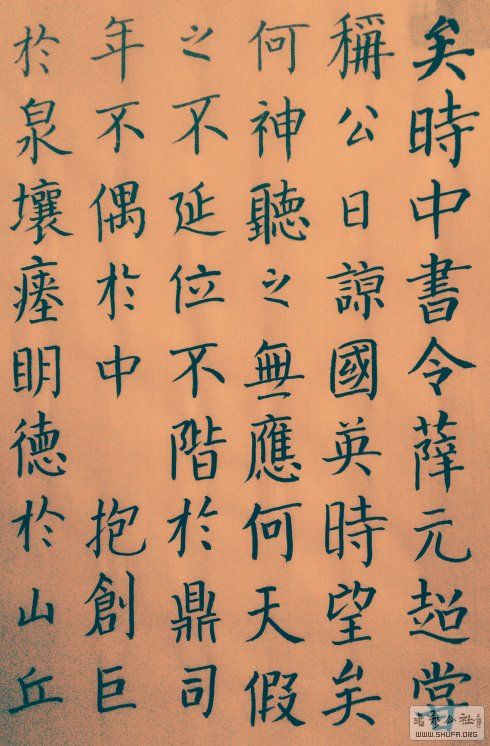 矣時中書令薛元超
稱公日諒國英時望矣
何神聽之無應何天假
之不延位不階於鼎司
年不偶於中 抱創巨
於泉壤瘞眀德於山丘
書藝公社
WWW.SHUFA.ORG